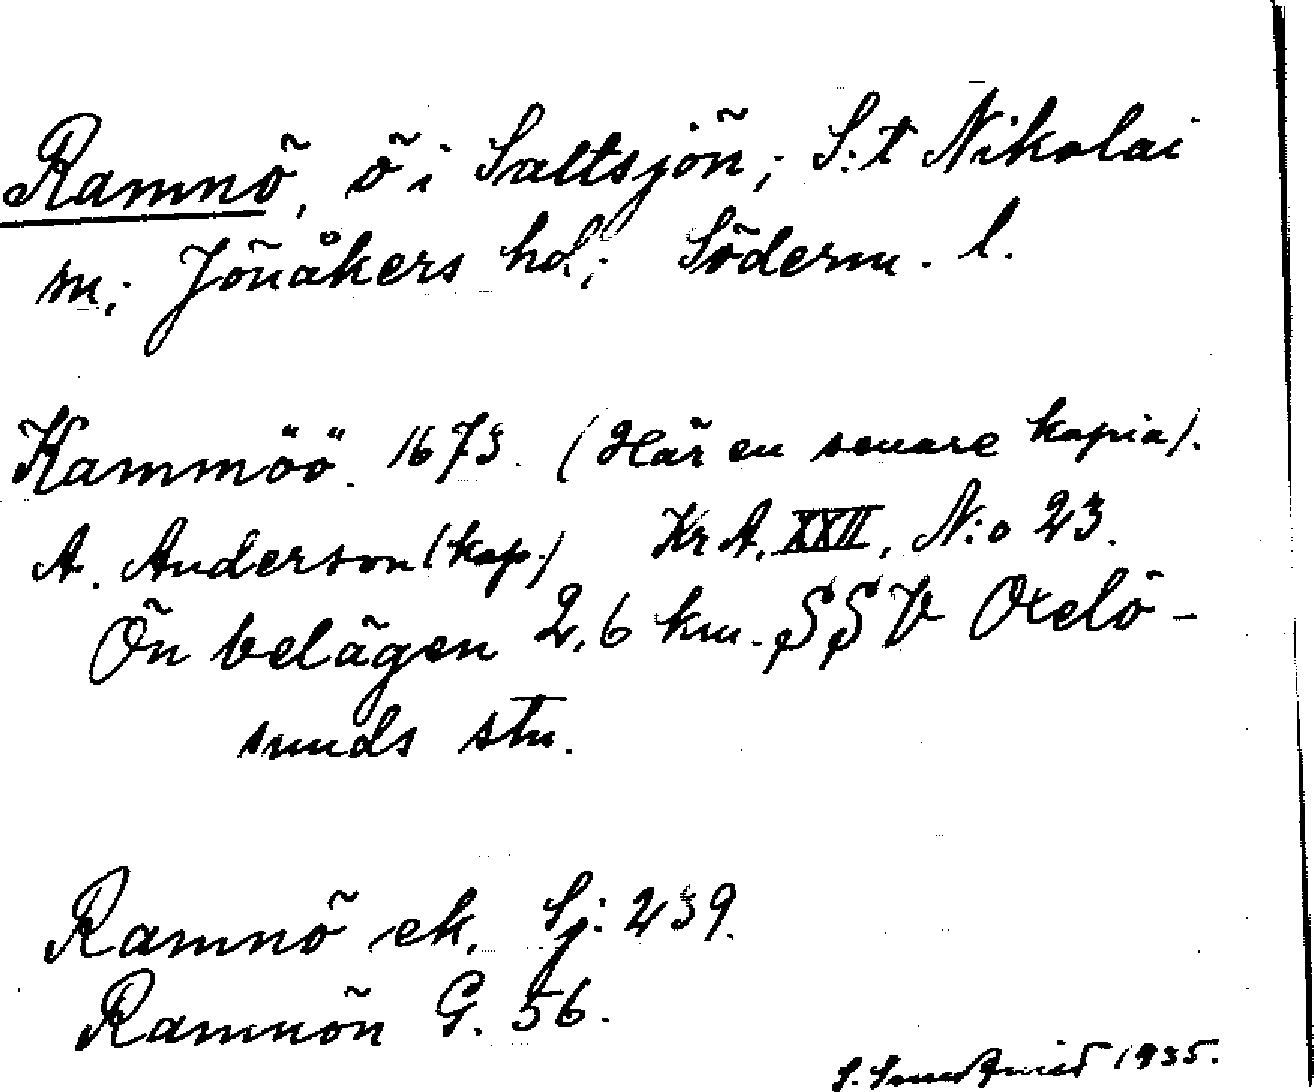 Ramnö, ö i Saltsjön; S:t Nikolai
sn; Jönåkers hd; Söderm. l.
Kammöö. 1673. (Här en senare kopia).
A. Anderson (kop.) Kr A. XXII, N:o 23.
Ön belägen 2,6 km. SSV Oxelö-
sunds stn.
Ramnö ek. Sj. 239.
Ramnön G. 56.
S. 1935.